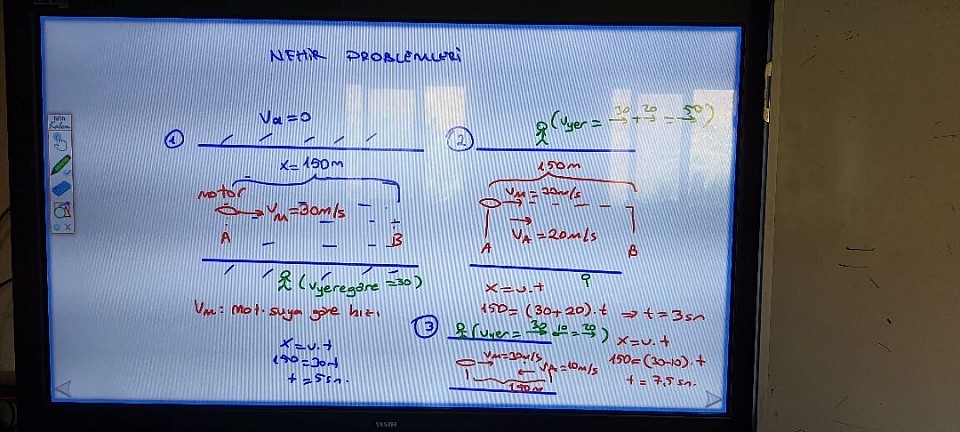 NEHİR PROBLEMLERİ
Kalem
① Va=0
x=150m
motor
VM=30m/s
A B
(Vyere göre=30)
VM: mot. suya göre hızı
x=v.t
150=30.t
t=5sn.
② (Vyer = 30 + 20 = 50)
150m
VM=30m/s
VA=20m/s
A B
x=v.t
150=(30+20).t ⇒ t=3sn
③ (Vyer = 30 10 = 20)
VM=30m/s
VA=10m/s
150m
x=v.t
150=(30-10).t
t=7,5sn.
VESTEL